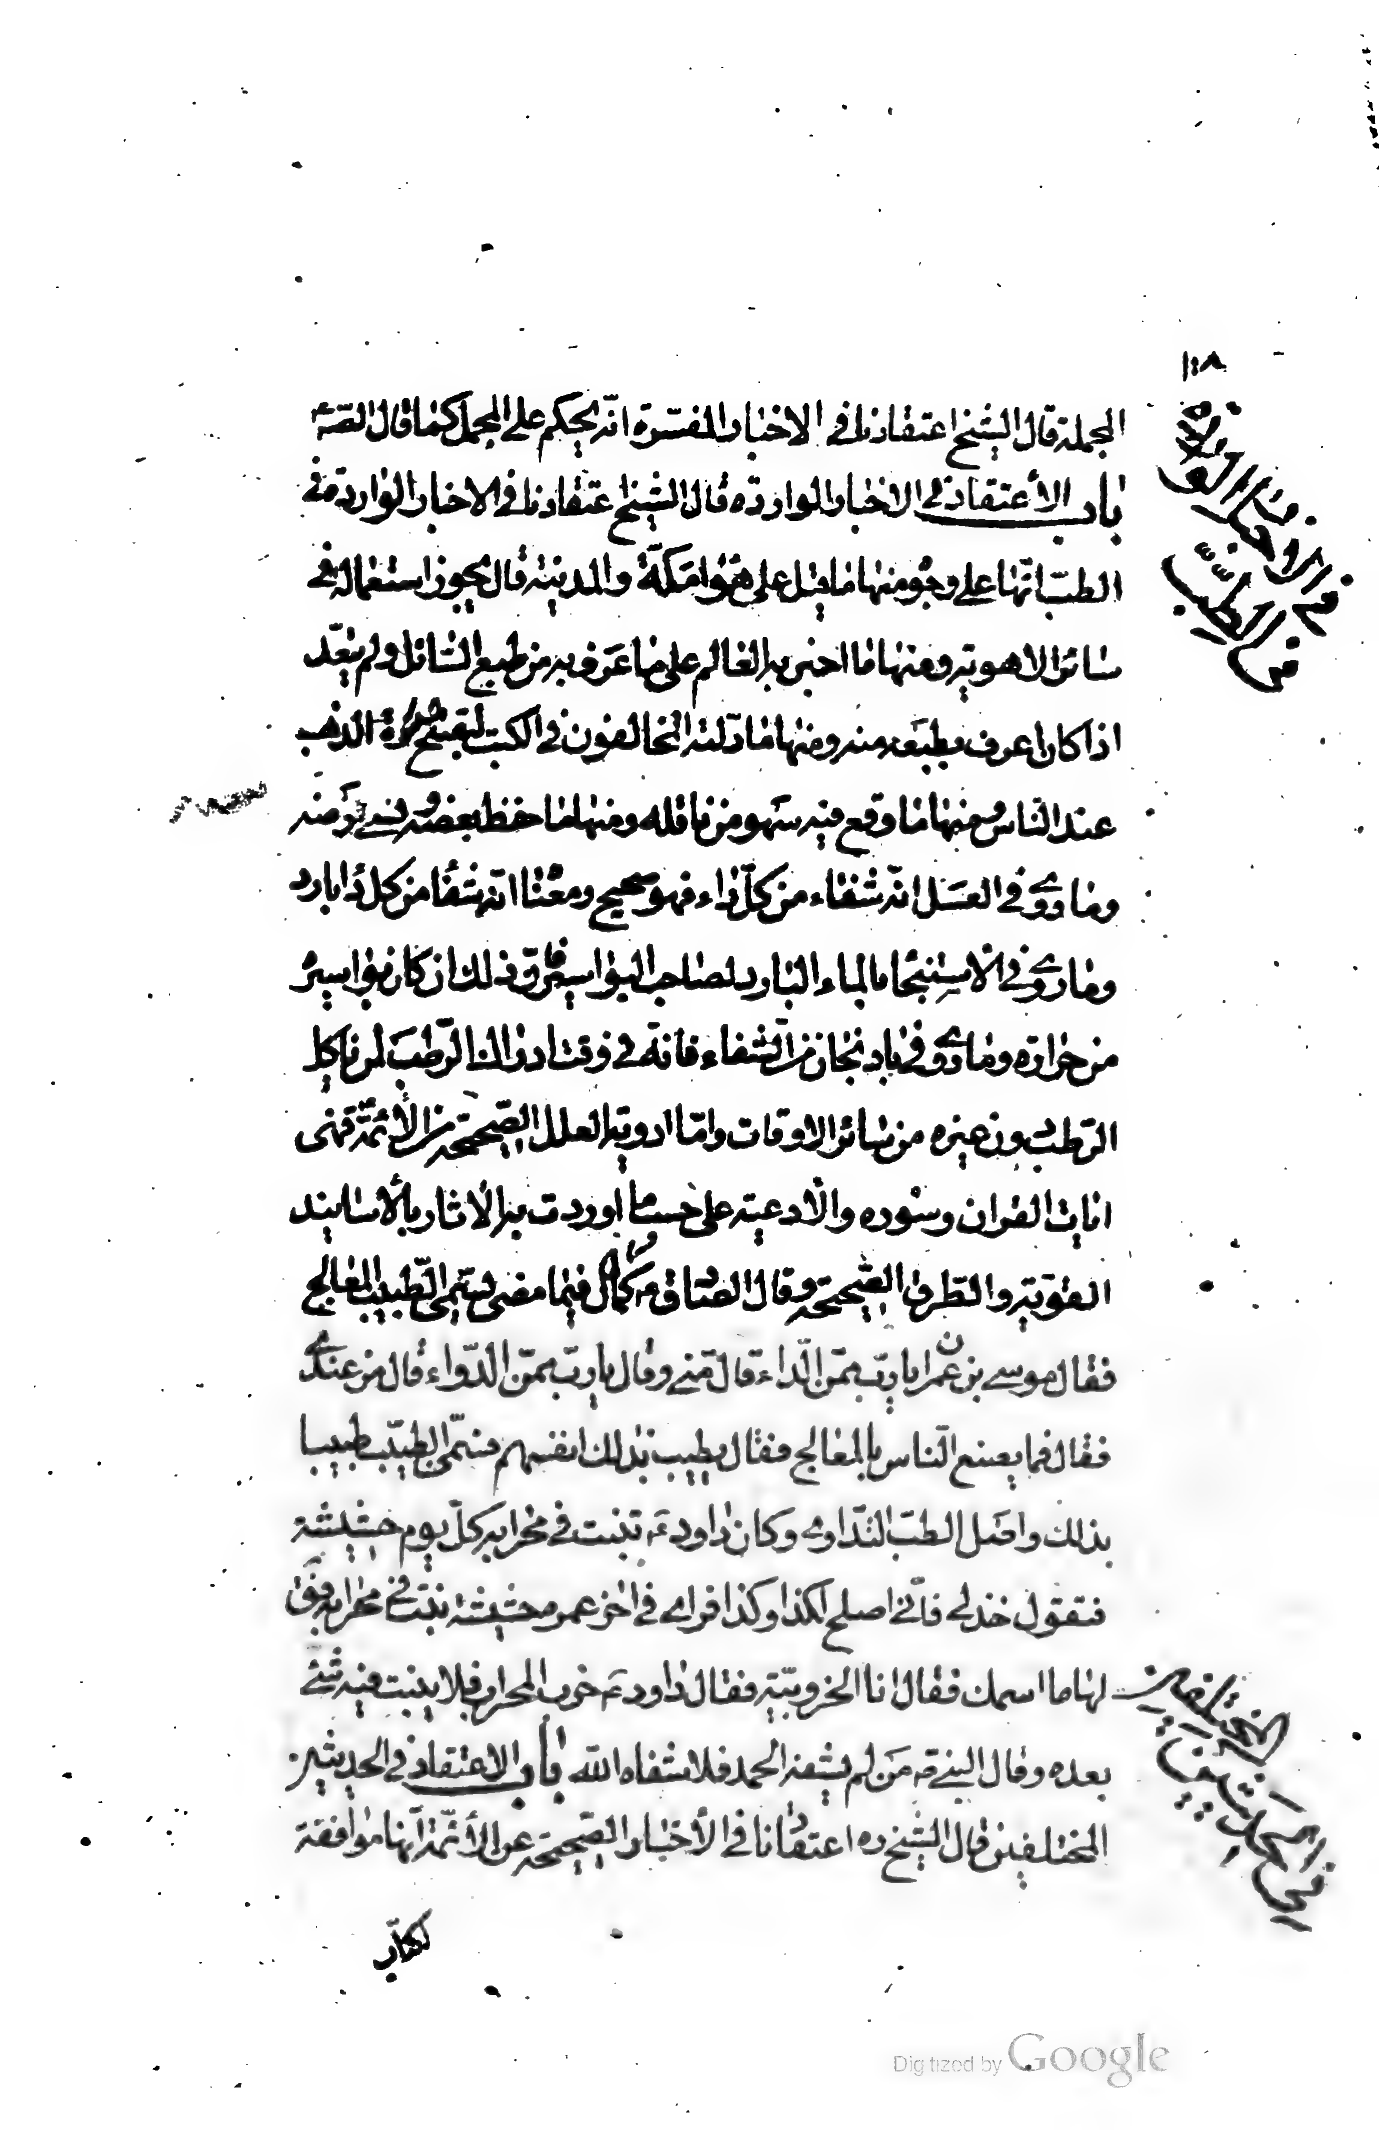 ١٠٨
المجملة قال الشيخ اعتقادنا في الاخبار المفسّرة انّه يحكم على المجمل كما قال الصّ ع
باب الأعتقاد في الاخبار الواردة قال الشيخ اعتقادنا في الاخبار الواردة في
الطبّ انّها على وجوه منها ما قيل على هوا مكّة والمدينة قال يجوز استعماله في
سائر الاهوية ومنها ما اخبر به العالم على ما عرف به من طبع السّائل ولم يتعدّ
اذا كان اعرف بطبعه منه ومنها ما دلّسه المخالفون في الكتب ليقبح صورة المذهب
عند النّاس ومنها ما وقع فيه سهو من ناقله ومنها ما حفظ بعضه ونسي بعضه
وما روي في العسل انّه شفاء من كلّ داء فهو صحيح ومعناه انّه شفا من كل دا بارد
وما روي في الاستنجا بالماء البارد لصاحب البواسير فان ذلك ان كان بواسيره
من حرارة وما روي في بادنجان من الشفاء فانّه في وقت ادراك الرّطب لمن ياكل
الرّطب دون غيره من سائر الاوقات وامّا ادوية العلل الصّحيحة من الأئمّة فهي
ايات القران وسوره والادعية على حسب ما اوردت به الاثار بالأسانيد
القويّة والطّرق الصّحيحة وقال الصادق ع كان فيما مضى يسمّى الطّبيب المعالج
فقال موسى بن عمران يا ربّ ممّن الدّاء قال منّي وقال يا ربّ ممّن الدّواء قال من عندي
فقال فما يصنع النّاس بالمعالج فقال يطيب بذلك انفسهم فسمّى الطّبيب طبيبا
بذلك واصل الطبّ التّداوي وكان داود ع تنبت في محرابه كلّ يوم حشيشة
فتقول خذني فانّي اصلح لكذا وكذا فراى في اخر عمره حشيشة نبتت في محرابه فق
لها ما اسمك فقال انا الخروبيّة فقال داود ع خرب المحراب فلا ينبت فيه شيء
بعده وقال النبي ص من لم يشفه الحمد فلا شفاه الله باب الاعتقاد في الحديثين
المختلفين قال الشيخ ره اعتقادنا في الأخبار الصّحيحة عن الأئمّة انها موافقة
لكتاب
في الاخبار الواردة
في الطبّ
في الحديثين
المختلفين
Digitized by Google